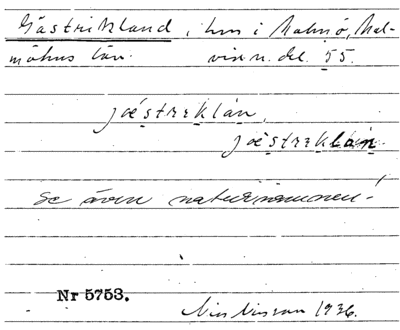 Gästrikland, hm i Malmö, Mal-
möhus län. vixn. del. 55.
jœstrɛklán,
jœ̀strɛklàin.
Se även naturnamnen!
Nr 5753.
Nils Nilsson 1936.